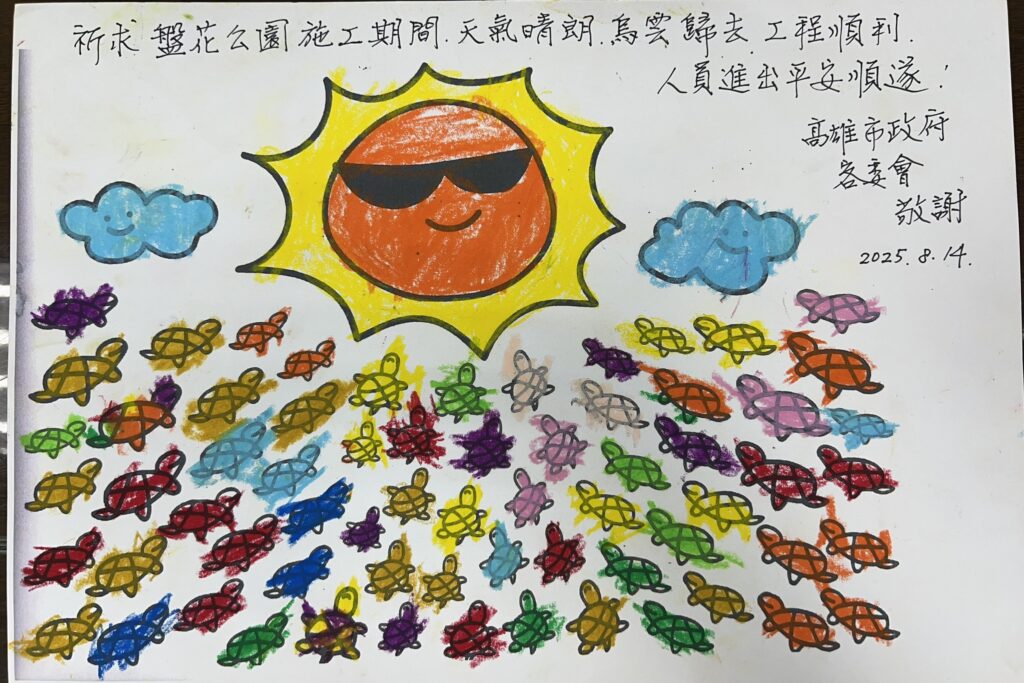 祈求 盤花公園 施工期間. 天氣晴朗. 烏雲歸去. 工程順利.
人員進出平安順遂!
高雄市政府
客委會
敬謝
2025. 8. 14.